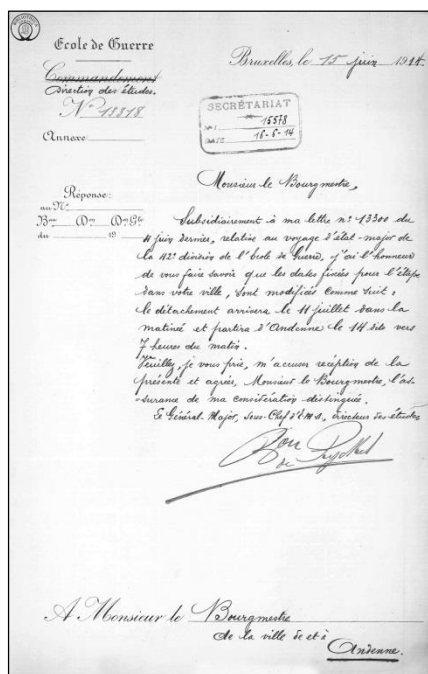 Ecole de Guerre
Bruxelles, le 15 juin 1914.
Commandement
Direction des études.
N° 13318
SECRÉTARIAT
15578
16-6-14
Annexe
Monsieur le Bourgmestre,
Réponse:
au N°
Bau Don Don Gle
du 19
Subsidiairement à ma lettre n° 13300 du
4 juin dernier, relative au voyage d'état-major de
la 42e division de l'Ecole de Guerre, j'ai l'honneur
de vous faire savoir que les dates fixées pour l'étape
dans votre ville, sont modifiées comme suit:
le détachement arrivera le 11 juillet dans la
matinée et partira d'Andenne le 14 dito vers
7 heures du matin.
Veuillez, je vous prie, m'accuser réception de la
présente et agréer, Monsieur le Bourgmestre, l'as-
surance de ma considération distinguée.
Le Général-Major, sous-Chef d'E.M.A., directeur des études
Bon
de
A Monsieur le Bourgmestre
de la ville de et à
Andenne.